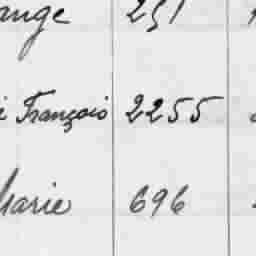 ange 251
François 2255
Marie 696